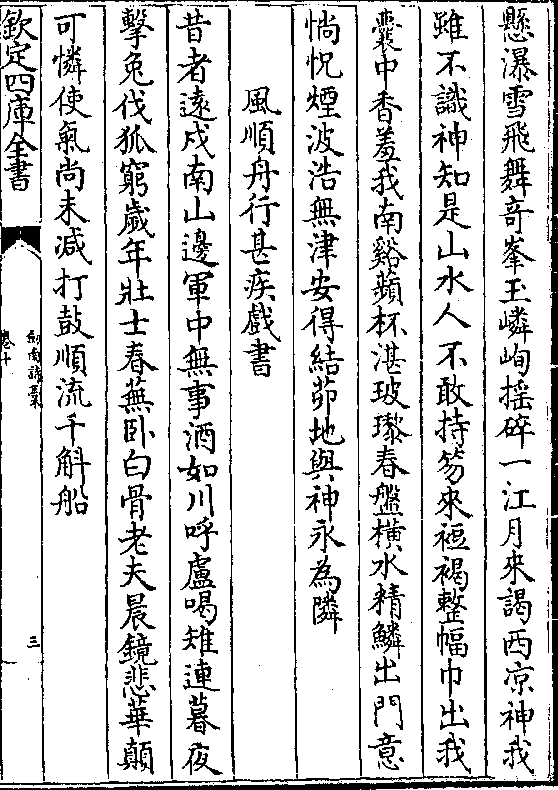 懸瀑雪飛舞奇峯玉嶙峋摇碎一江月來謁西凉神我
雖不識神知是山水人不敢持笏來裋褐整幅巾出我
囊中香羞我南谿蘋杯湛玻瓈春盤横水精鱗出門意
惝怳煙波浩無津安得結茆地與神永為隣
風順舟行甚疾戲書
昔者逺戍南山邊軍中無事酒如川呼盧喝雉連暮夜
擊兔伐狐窮歲年壯士春蕪卧白骨老夫晨鏡悲華顛
可憐使氣尚未减打鼓順流千斛船
欽定四庫全書
劍南詩藁
卷十
三